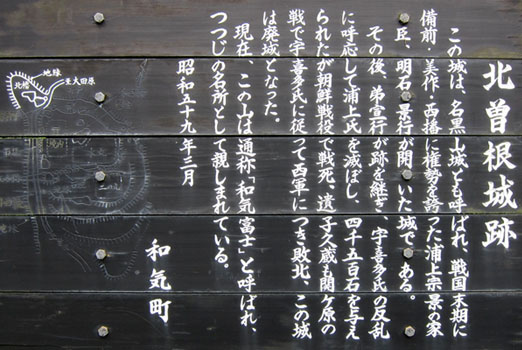 北曽根城跡
この城は、名黒山城とも呼ばれ、戦国末期に
備前・美作・西播に権勢を誇った浦上宗景の家
臣、明石景行が開いた城である。
その後、弟宣行が跡を継ぎ、宇喜多氏の反乱
に呼応して浦上氏を滅ぼし、四千五百石を与え
られたが朝鮮戦役で戦死、遺子久蔵も関ヶ原の
戦で宇喜多氏に従って西軍につき敗北、この城
は廃城となった。
現在、この山は通称「和気富士」と呼ばれ、
つつじの名所として親しまれている。
昭和五十九年三月
和気町